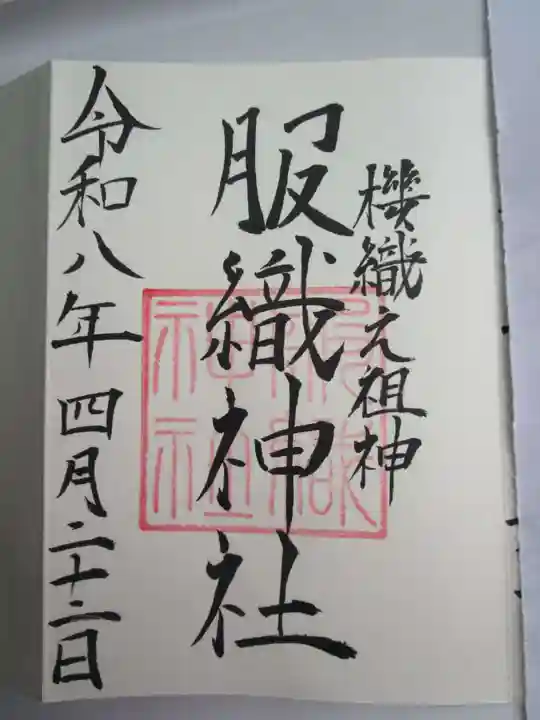 機織元祖神
服織神社
服織神社
令和八年四月二十二日